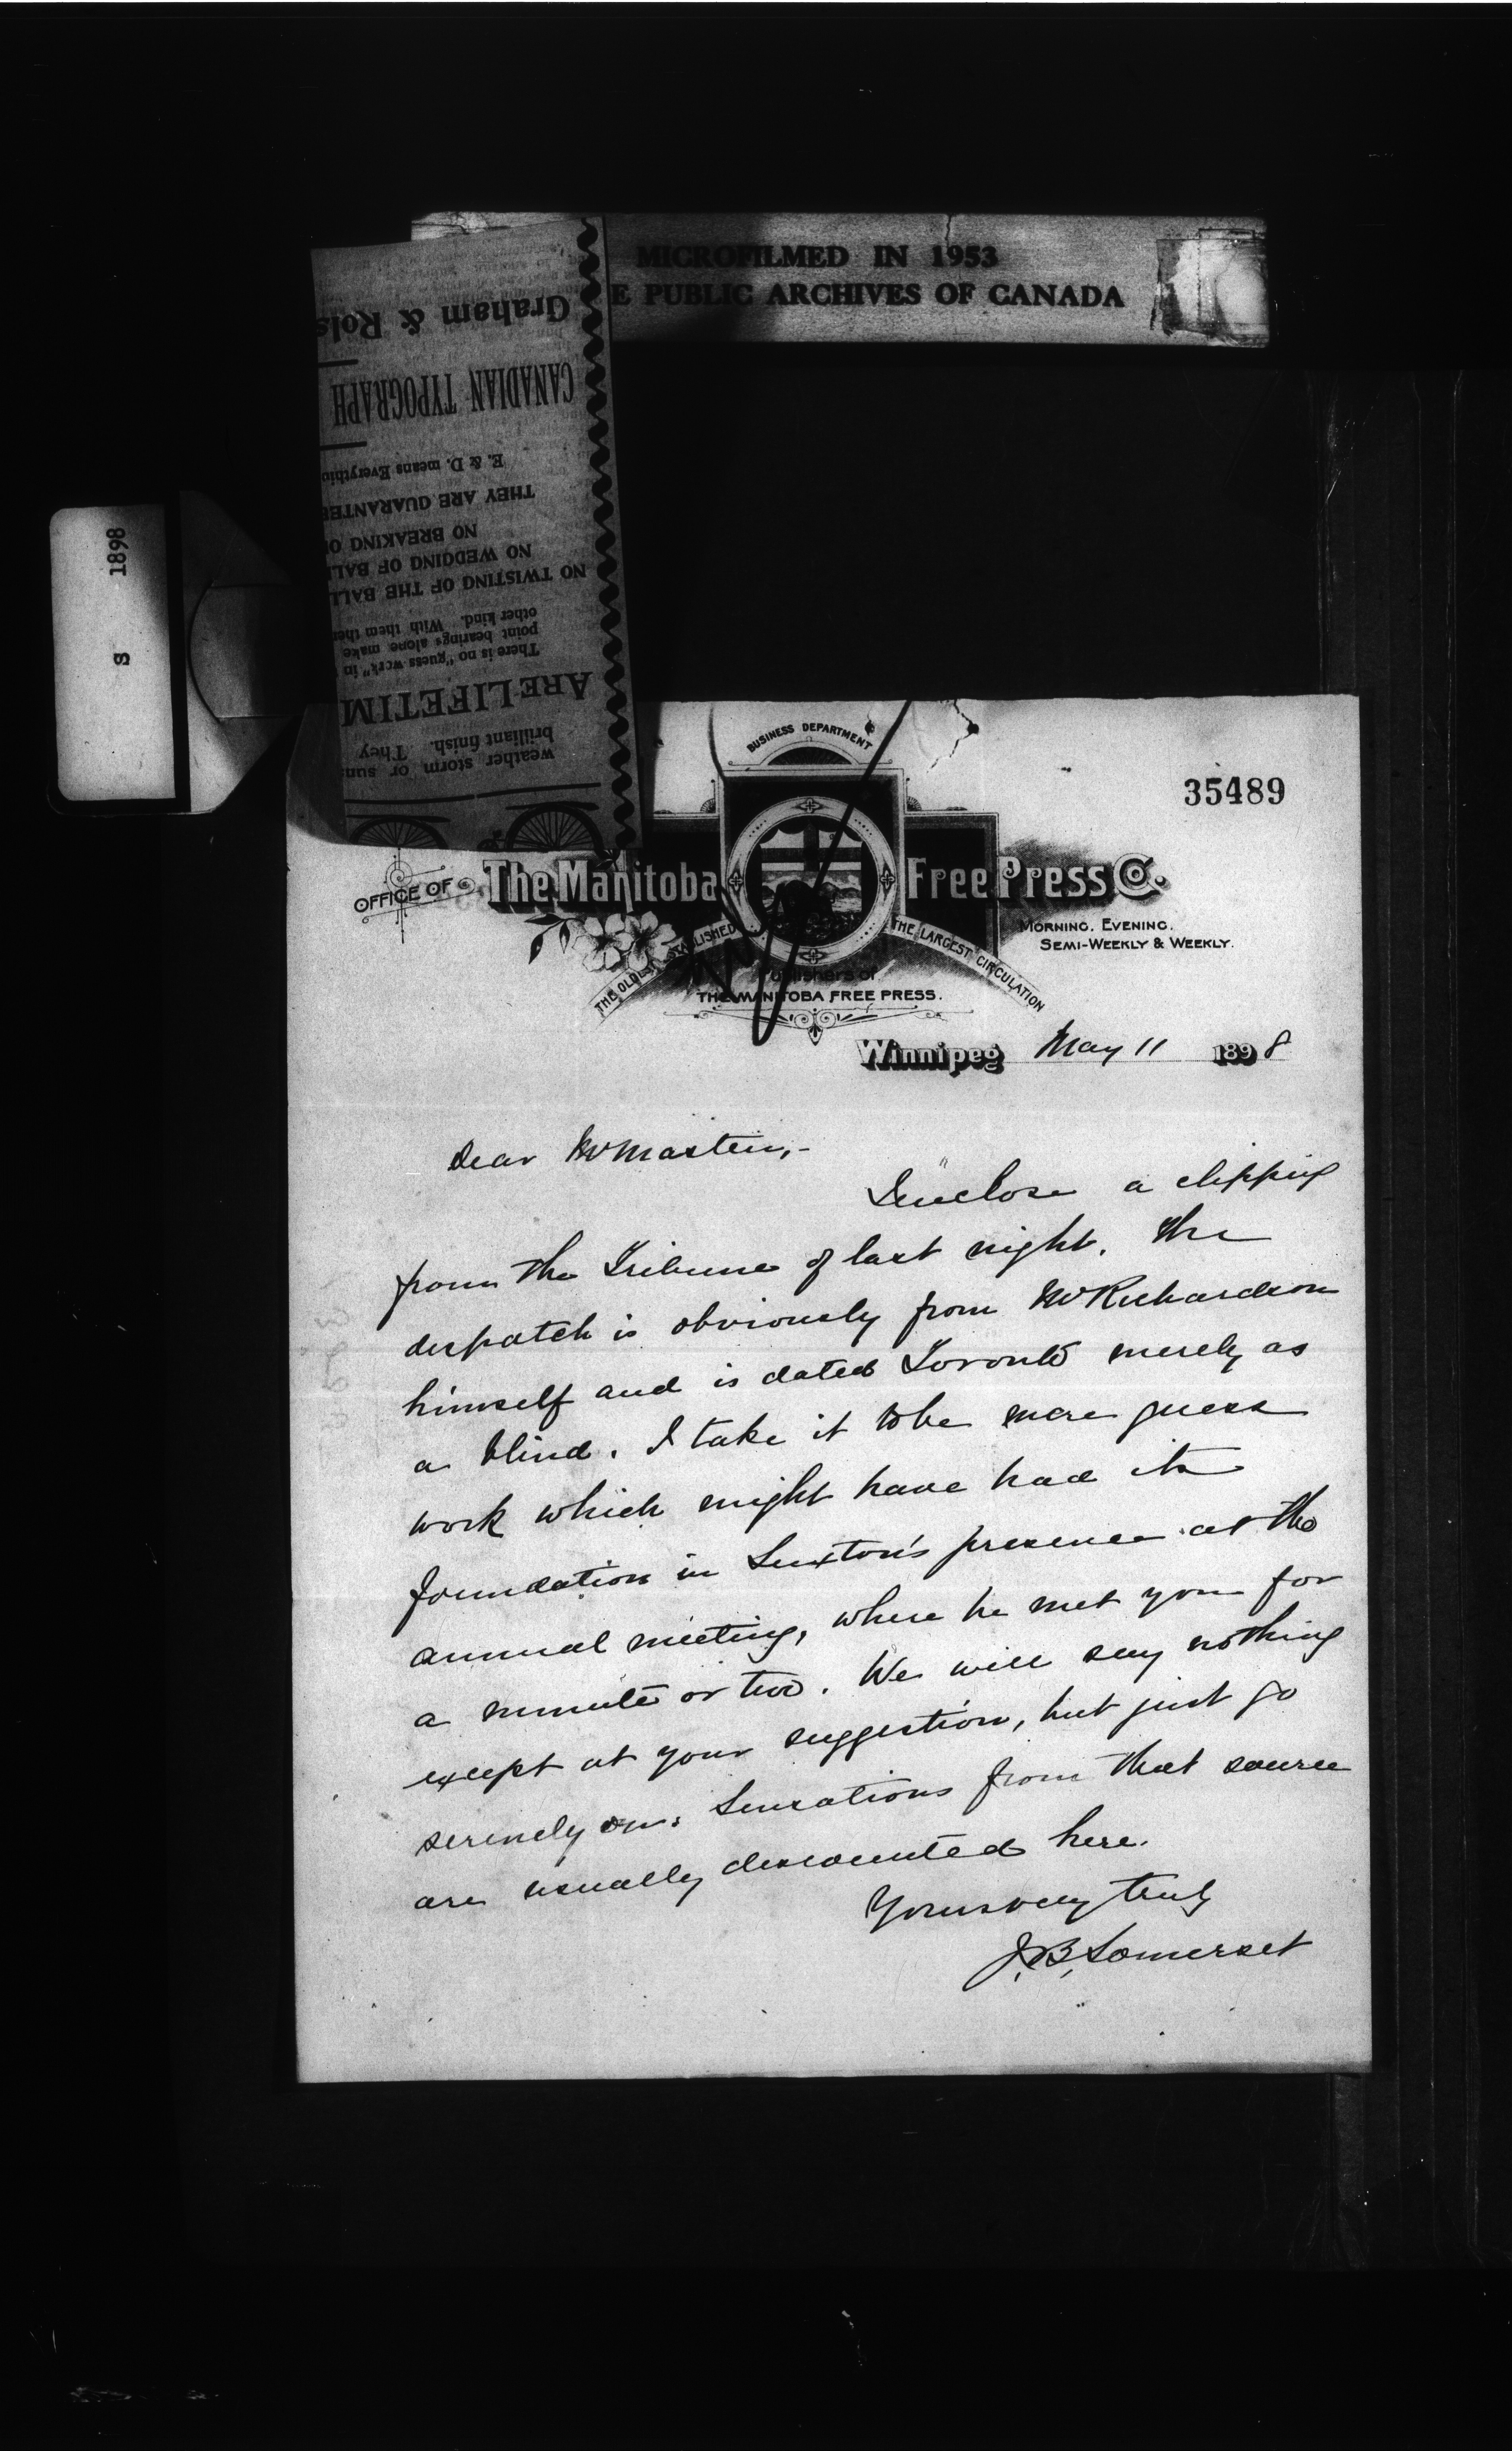 MICROFILMED IN 1953
E PUBLIC ARCHIVES OF CANADA
S 1898
weather storm or sun
brilliant finish. They
ARE LIFETIM
There is no "guess work" in
point bearings alone make
other kind. With them ther
NO TWISTING OF THE BALL
NO WEDGING OF BALL
NO BREAKING O
THEY ARE GUARANTEE
E. & D. means Everythin
CANADIAN TYPOGRAPH
Graham & Rols
35489
BUSINESS DEPARTMENT
OFFICE OF The Manitoba Free Press Co.
MORNING, EVENING,
SEMI-WEEKLY & WEEKLY.
THE OLDEST ESTABLISHED
THE LARGEST CIRCULATION
Publishers of
THE MANITOBA FREE PRESS.
Winnipeg May 11 1898
Dear Mr
I enclose a clipping
from the Tribune of last night. The
dispatch is obviously from Mr Richardson
himself and is dated Toronto merely as
a blind. I take it to be mere guess
work which might have had its
foundation in Luxton's presence at the
annual meeting, where he met you for
a minute or two. We will say nothing
except at your suggestion, but just go
serenely on. Sensations from that source
are usually discounted here.
Yours very truly
J.B. Somerset